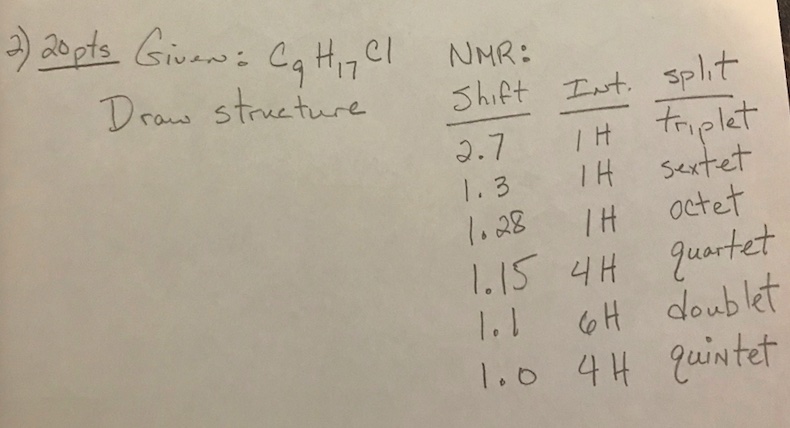 2) 20pts Given: C9H17Cl NMR:
Draw structure Shift Int. split
2.7 1H triplet
1.3 1H sextet
1.28 1H octet
1.15 4H quartet
1.1 6H doublet
1.0 4H quintet